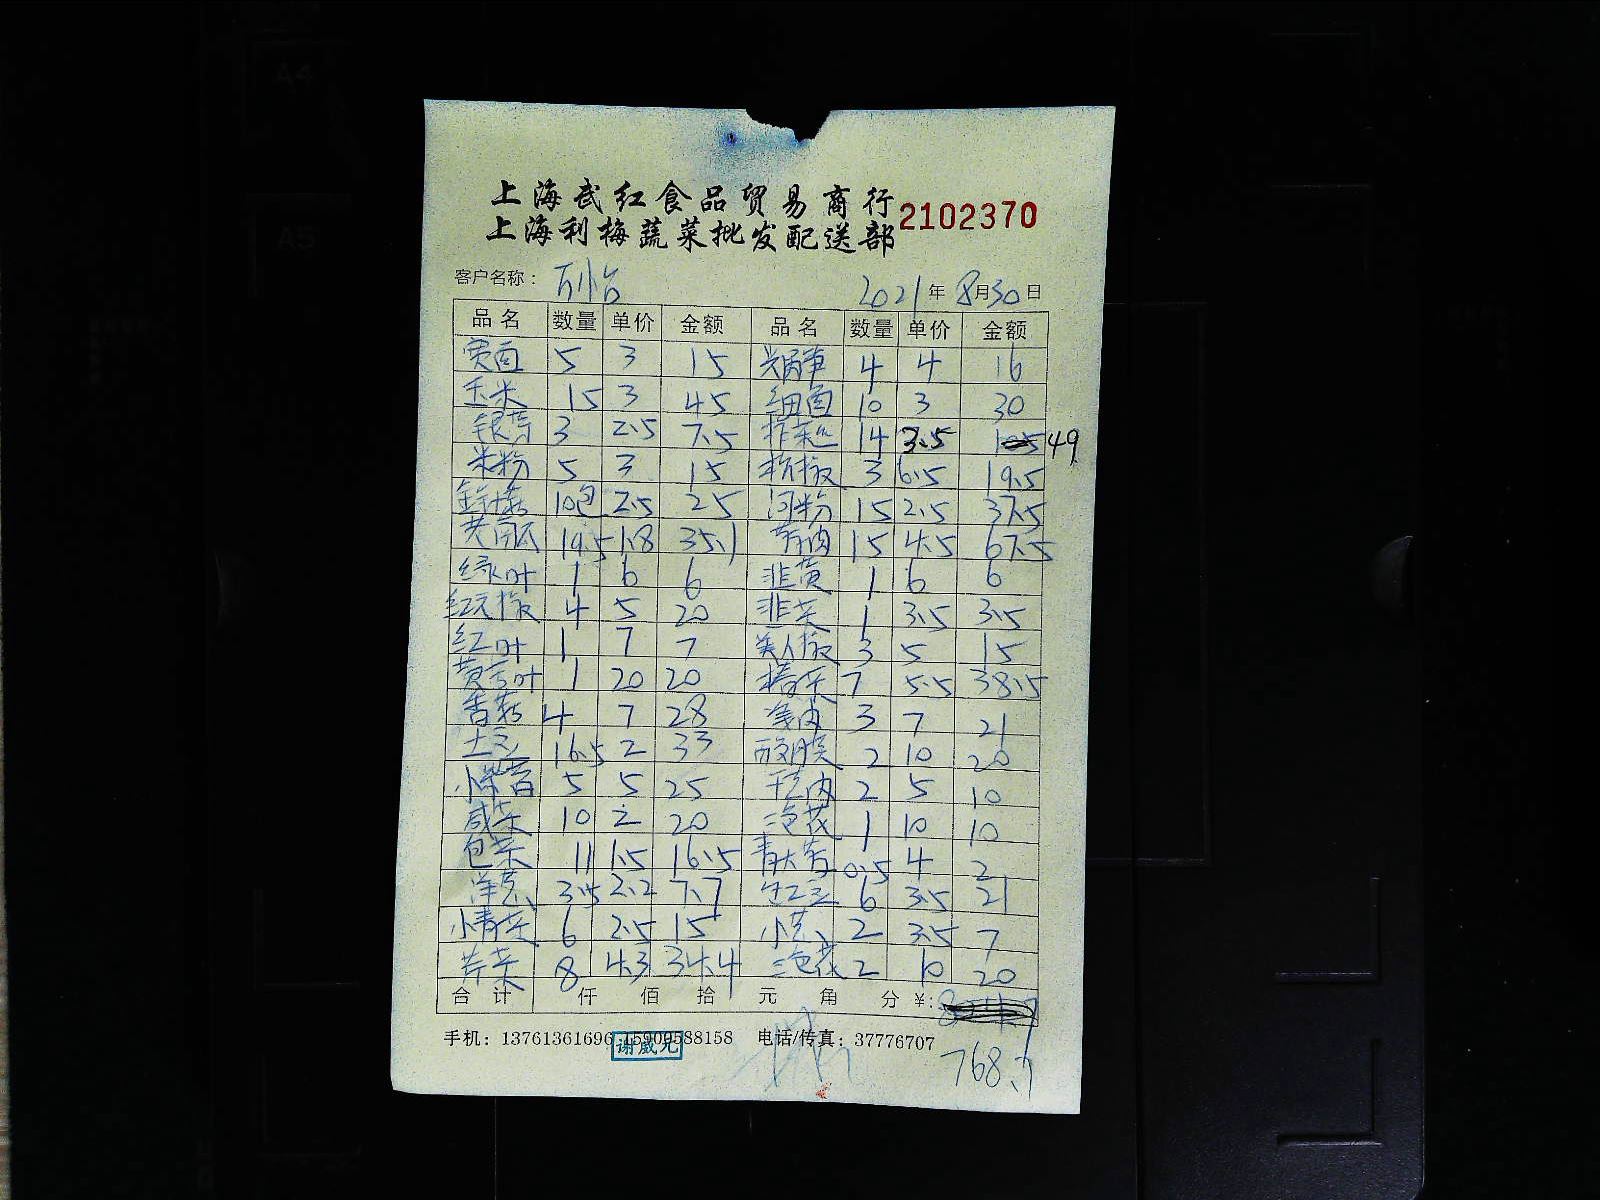 上海武红食品贸易商行
上海利梅蔬菜批发配送部
2102370
客户名称： 2021年8月30日
品名 数量 单价 金额 品名 数量 单价 金额
宽面 5 3 15 莴笋 4 4 16
玉米 15 3 45 细面 10 3 30
银芽 3 2.5 7.5 榨菜 14 3.5 49
米粉 5 3 15 杭椒 3 6.5 19.5
金针菇 10包 2.5 25 河粉 15 2.5 37.5
19.5 1.8 35.1 15 4.5 67.5
绿叶 1 6 6 韭黄 1 6 6
红元椒 4 5 20 韭菜 1 3.5 3.5
红叶 1 7 7 美人椒 3 5 15
黄豆叶 1 20 20 7 5.5 38.5
香菇 4 7 28 3 7 21
土豆 16.5 2 33 2 10 20
小 5 5 25 2 5 10
咸菜 10 2 20 1 10 10
包菜 11 1.5 16.5 青大 0.5 4 2
洋葱 3.5 2.2 7.7 6 3.5 21
小青菜 6 2.5 15 小葱 2 3.5 7
芹菜 8 4.3 34.4 2 10 20
合计 仟 佰 拾 元 角 分 ¥:
手机：13761361696 15900588158 电话/传真：37776707
谢威光
768.7